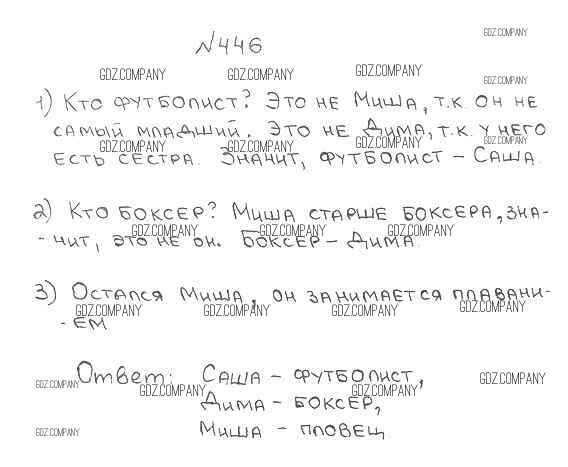 №446
GDZ.COMPANY
GDZ.COMPANY GDZ.COMPANY GDZ.COMPANY
GDZ.COMPANY
1) Кто футболист? Это не Миша, т.к. он не
самый младший. Это не Дима, т.к. у него
GDZ.COMPANY GDZ.COMPANY GDZ.COMPANY GDZ.COMPANY
есть сестра. Значит, футболист – Саша.
2) Кто боксер? Миша старше боксера, зна-
GDZ.COMPANY GDZ.COMPANY GDZ.COMPANY
-чит, это не он. Боксер – Дима.
3) Остался Миша, он занимается плавани-
GDZ.COMPANY GDZ.COMPANY GDZ.COMPANY GDZ.COMPANY
-ем
Ответ: Саша – футболист,
GDZ.COMPANY GDZ.COMPANY GDZ.COMPANY GDZ.COMPANY
Дима – боксер,
Миша – пловец
GDZ.COMPANY